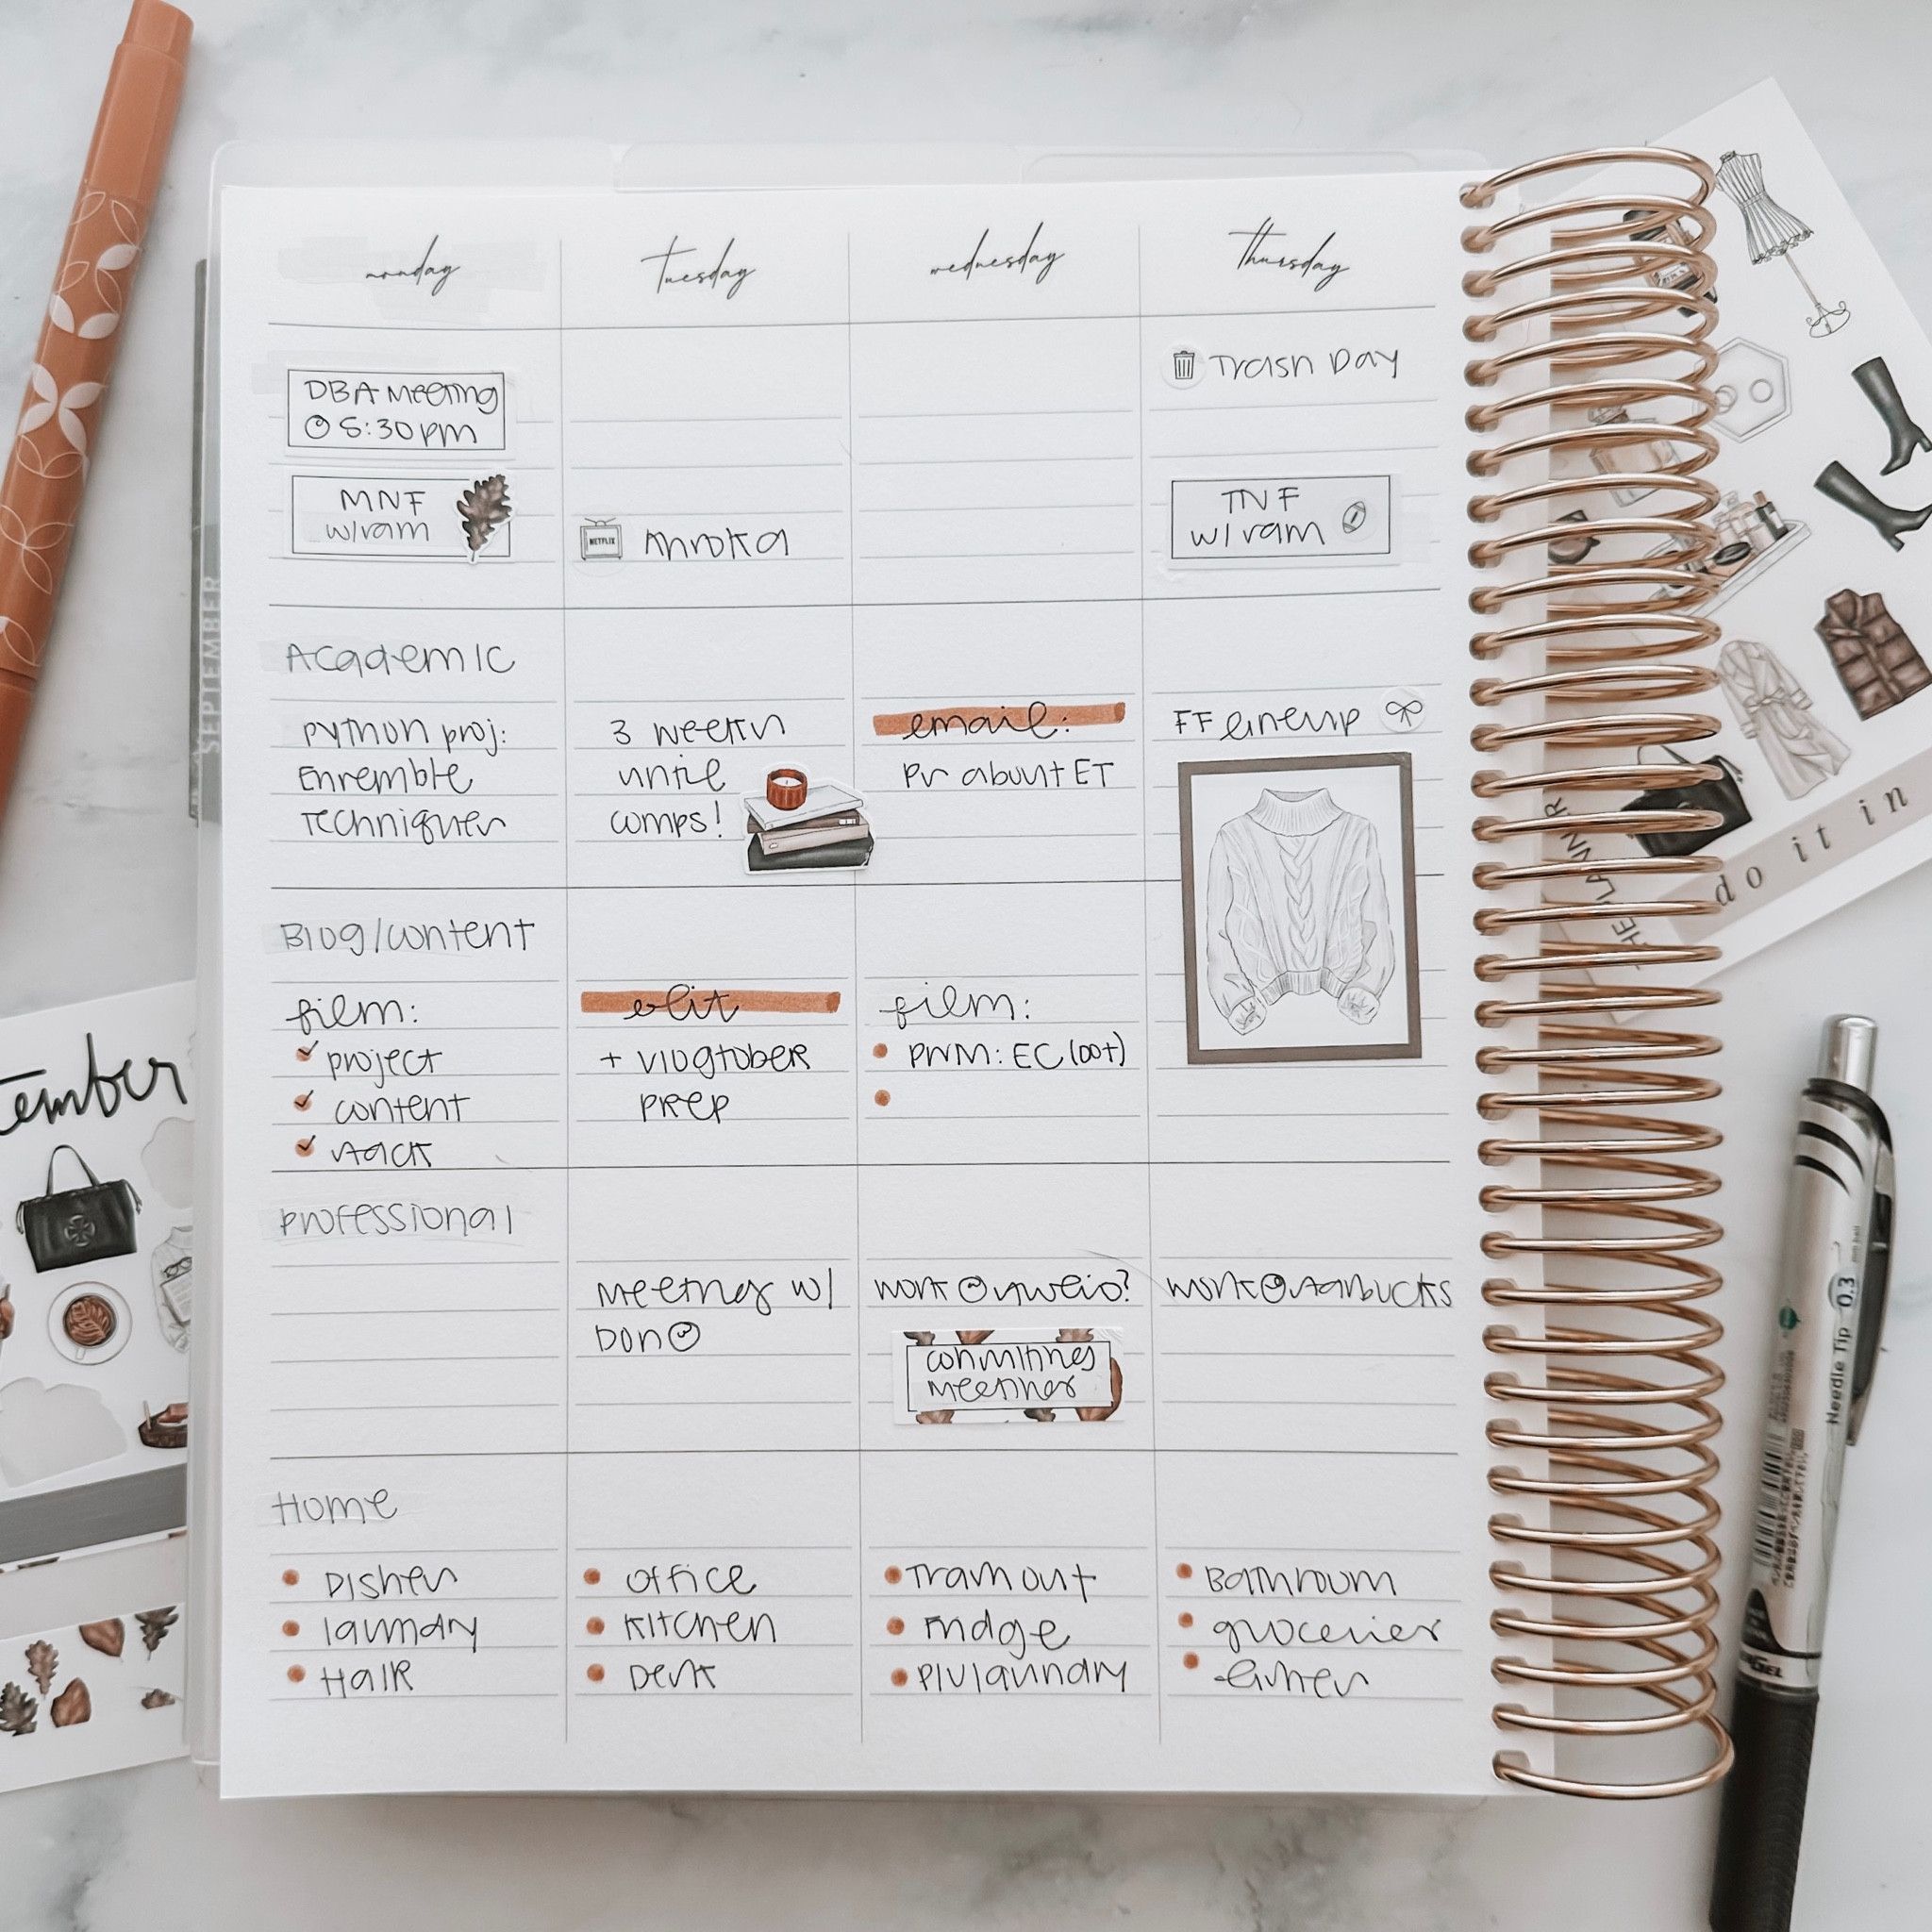 monday
tuesday
wednesday
thursday
DBA Meeting
@ 5:30pm
MNF
w/ram
NETFLIX
Trash Day
TNF
w/ram
Academic
Python proj:
Ensemble
Techniques
3 weeks
until
comps!
email:
PV about ET
FF lineup
Blog/content
film:
project
content
stack
edit
+ vlogtober
prep
film:
PWM: EC (oct)
Professional
Meeting w/
Don
work @ sweio?
committees
meetings
work @ starbucks
Home
Dishes
laundry
Hair
office
kitchen
Desk
Trash out
fridge
PIV laundry
Bathroom
groceries
linens
SEPTEMBER
tember
do it in
Needle Tip 0.3